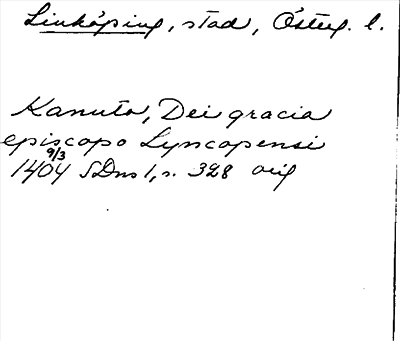 Linköping, stad, Östeg. l.
Kanuto, Dei gracia
episcopo Lyncopensi
9/3
1404 SDns 1, s. 328 orig